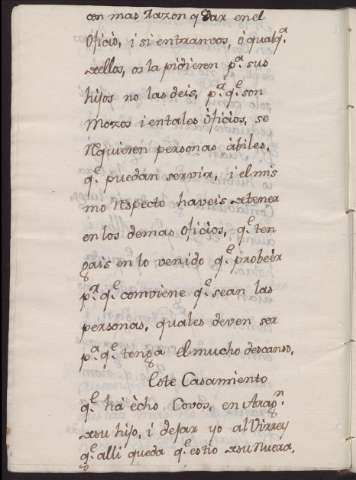 con mas razon q̃ dar en el
Oficio, i si entrambos, ò qualqª.
dellos, os la pidieren pª. sus
hijos no las deis, pª. q̃. son
Mozos i en tales Oficios, se
requieren personas àbiles,
q̃. puedan servir, i el mis
mo respecto haveis de tener
en los demas Oficios, q̃. ten
gais en lo venido q̃. probeèr
pª. q̃. conviene q̃. sean las
personas, quales deven ser
pª. q̃. tenga el mucho descanso,
Este Casamiento
q̃. hà ècho Covos, en Aragⁿ.
de su hijo, i dejar yo al Virrey
q̃. alli queda q̃. es tio de su Nuera,